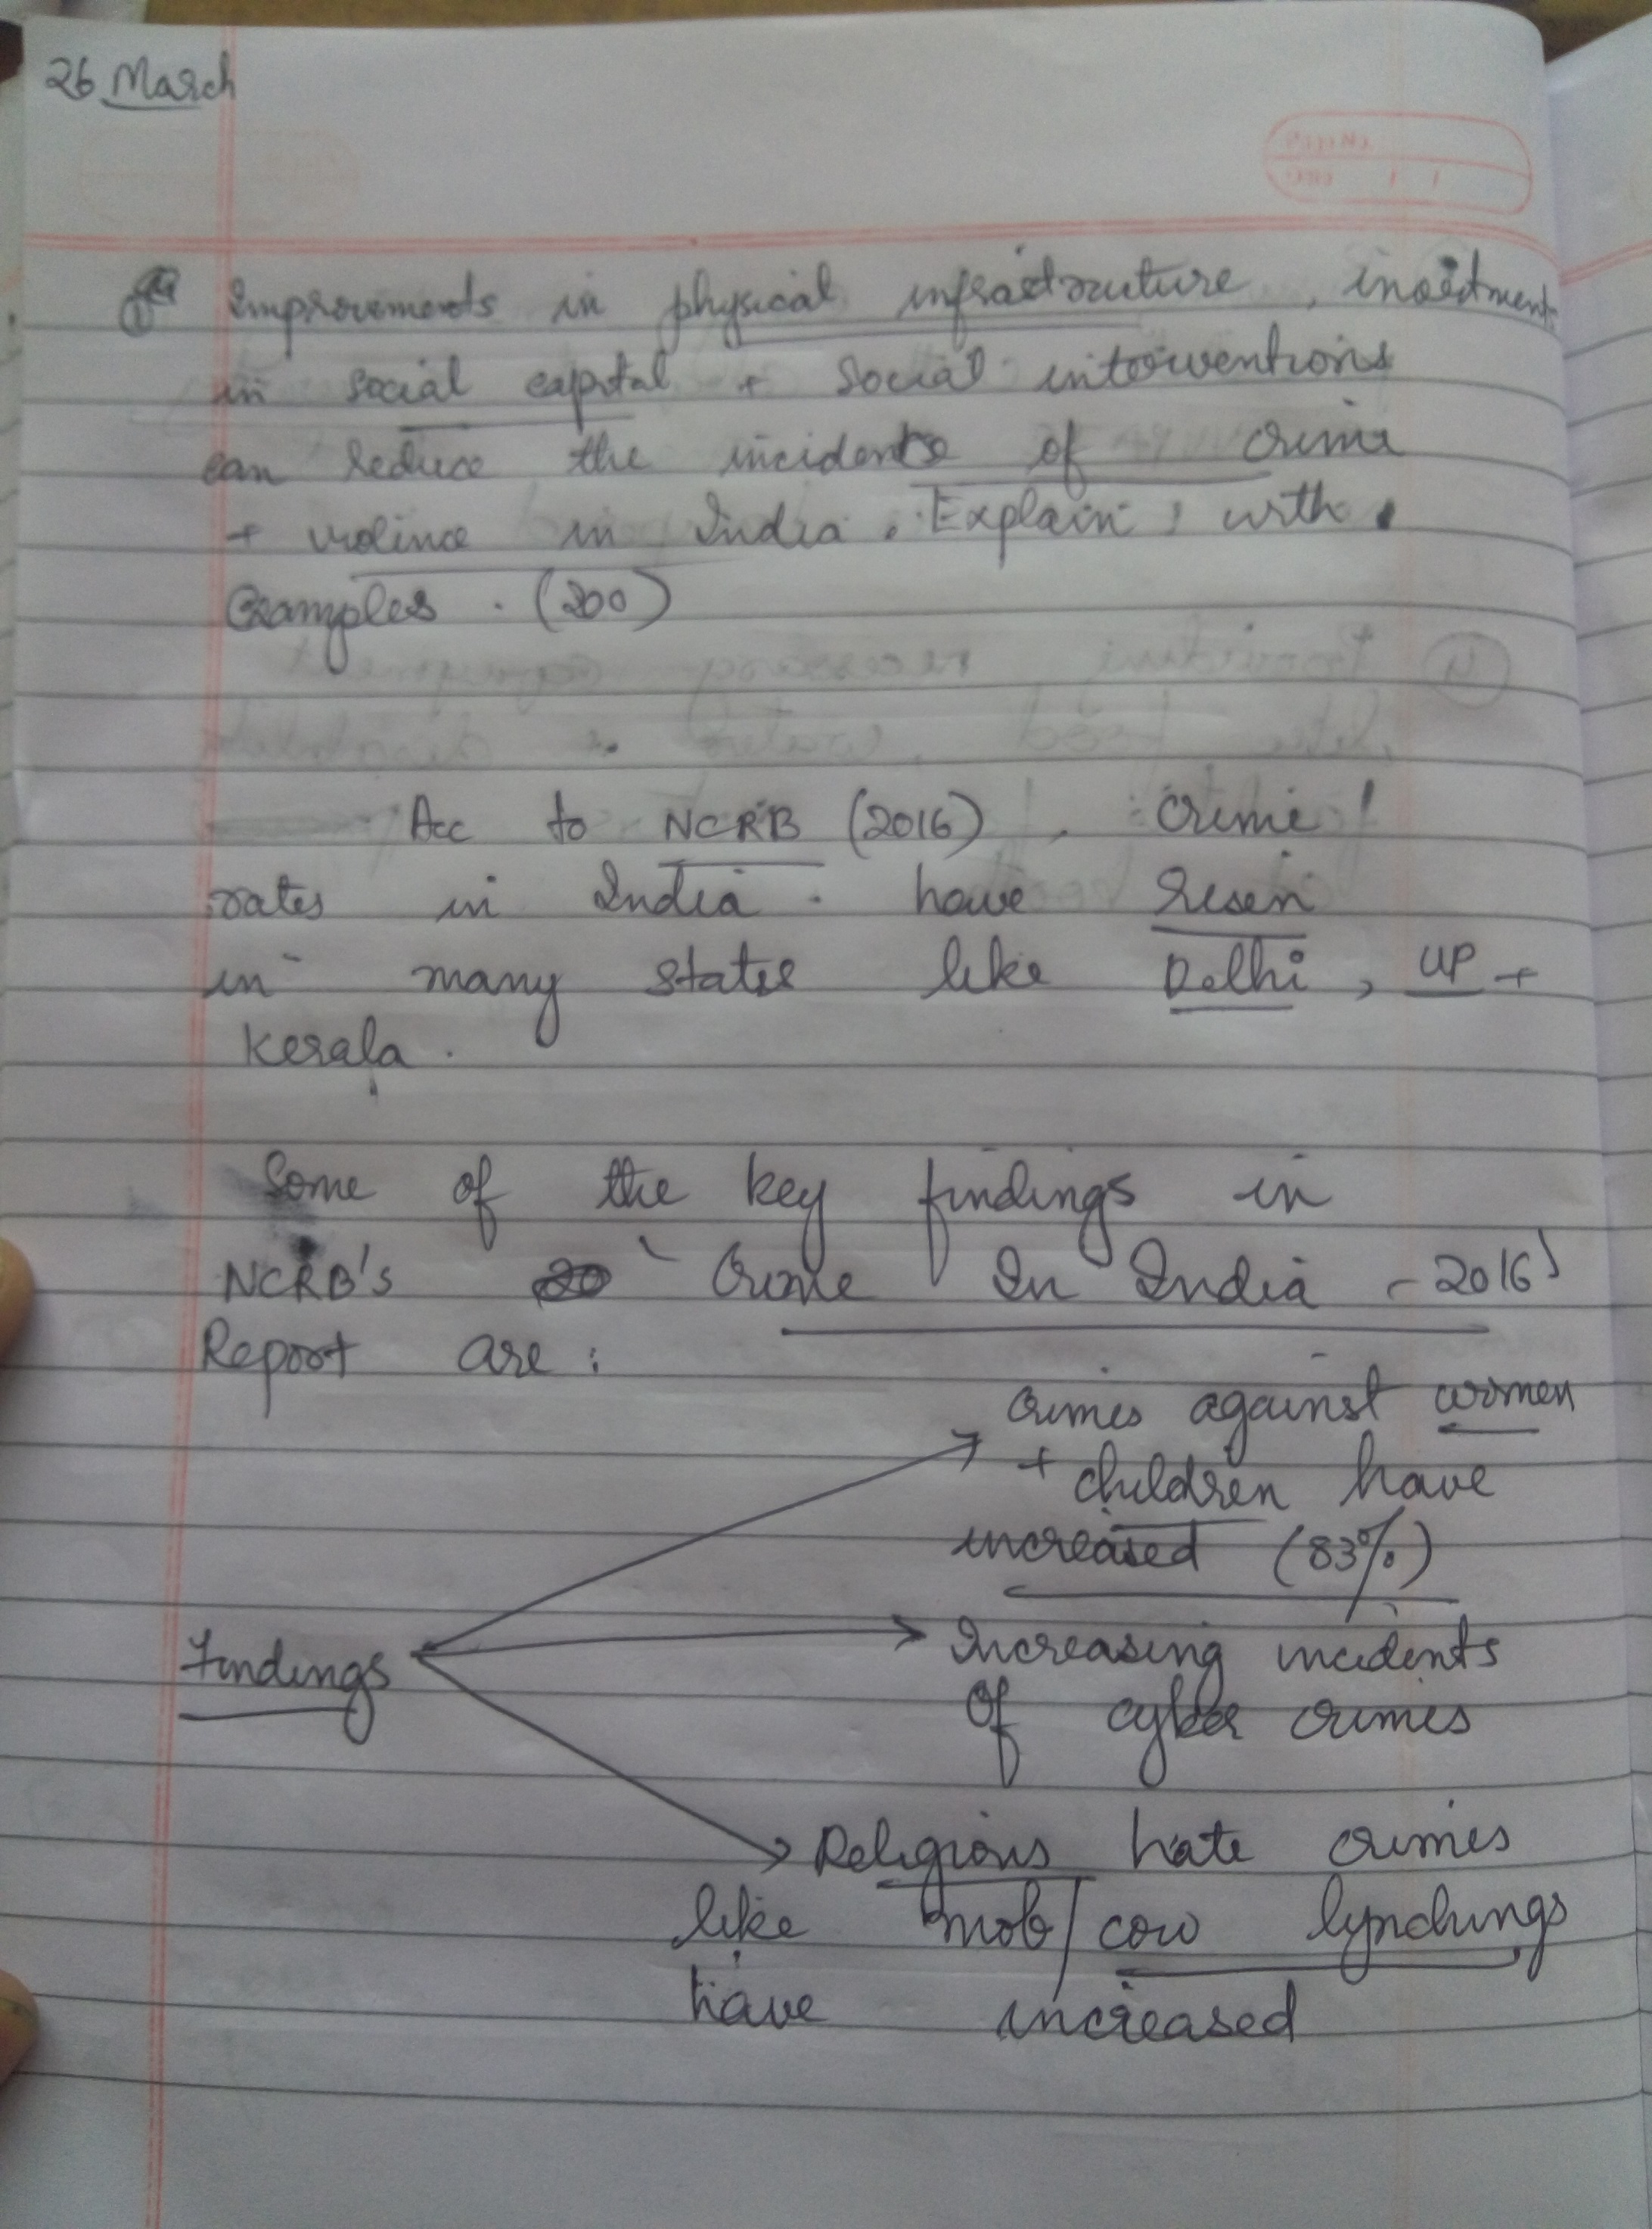 26 March
① Improvements in physical infrastructure, investment
in social capital + social interventions
can reduce the incidents of crime
+ violence in India. Explain, with
Examples. (200)
Acc to NCRB (2016), crime
rates in India have risen
in many states like Delhi, UP +
Kerala.
Some of the key findings in
NCRB's 'Crime In India - 2016'
Report are:
crimes against women
+ children have
increased (83%)
Findings
Increasing incidents
Of cyber crimes
Religious hate crimes
like mob/cow lynchings
have increased